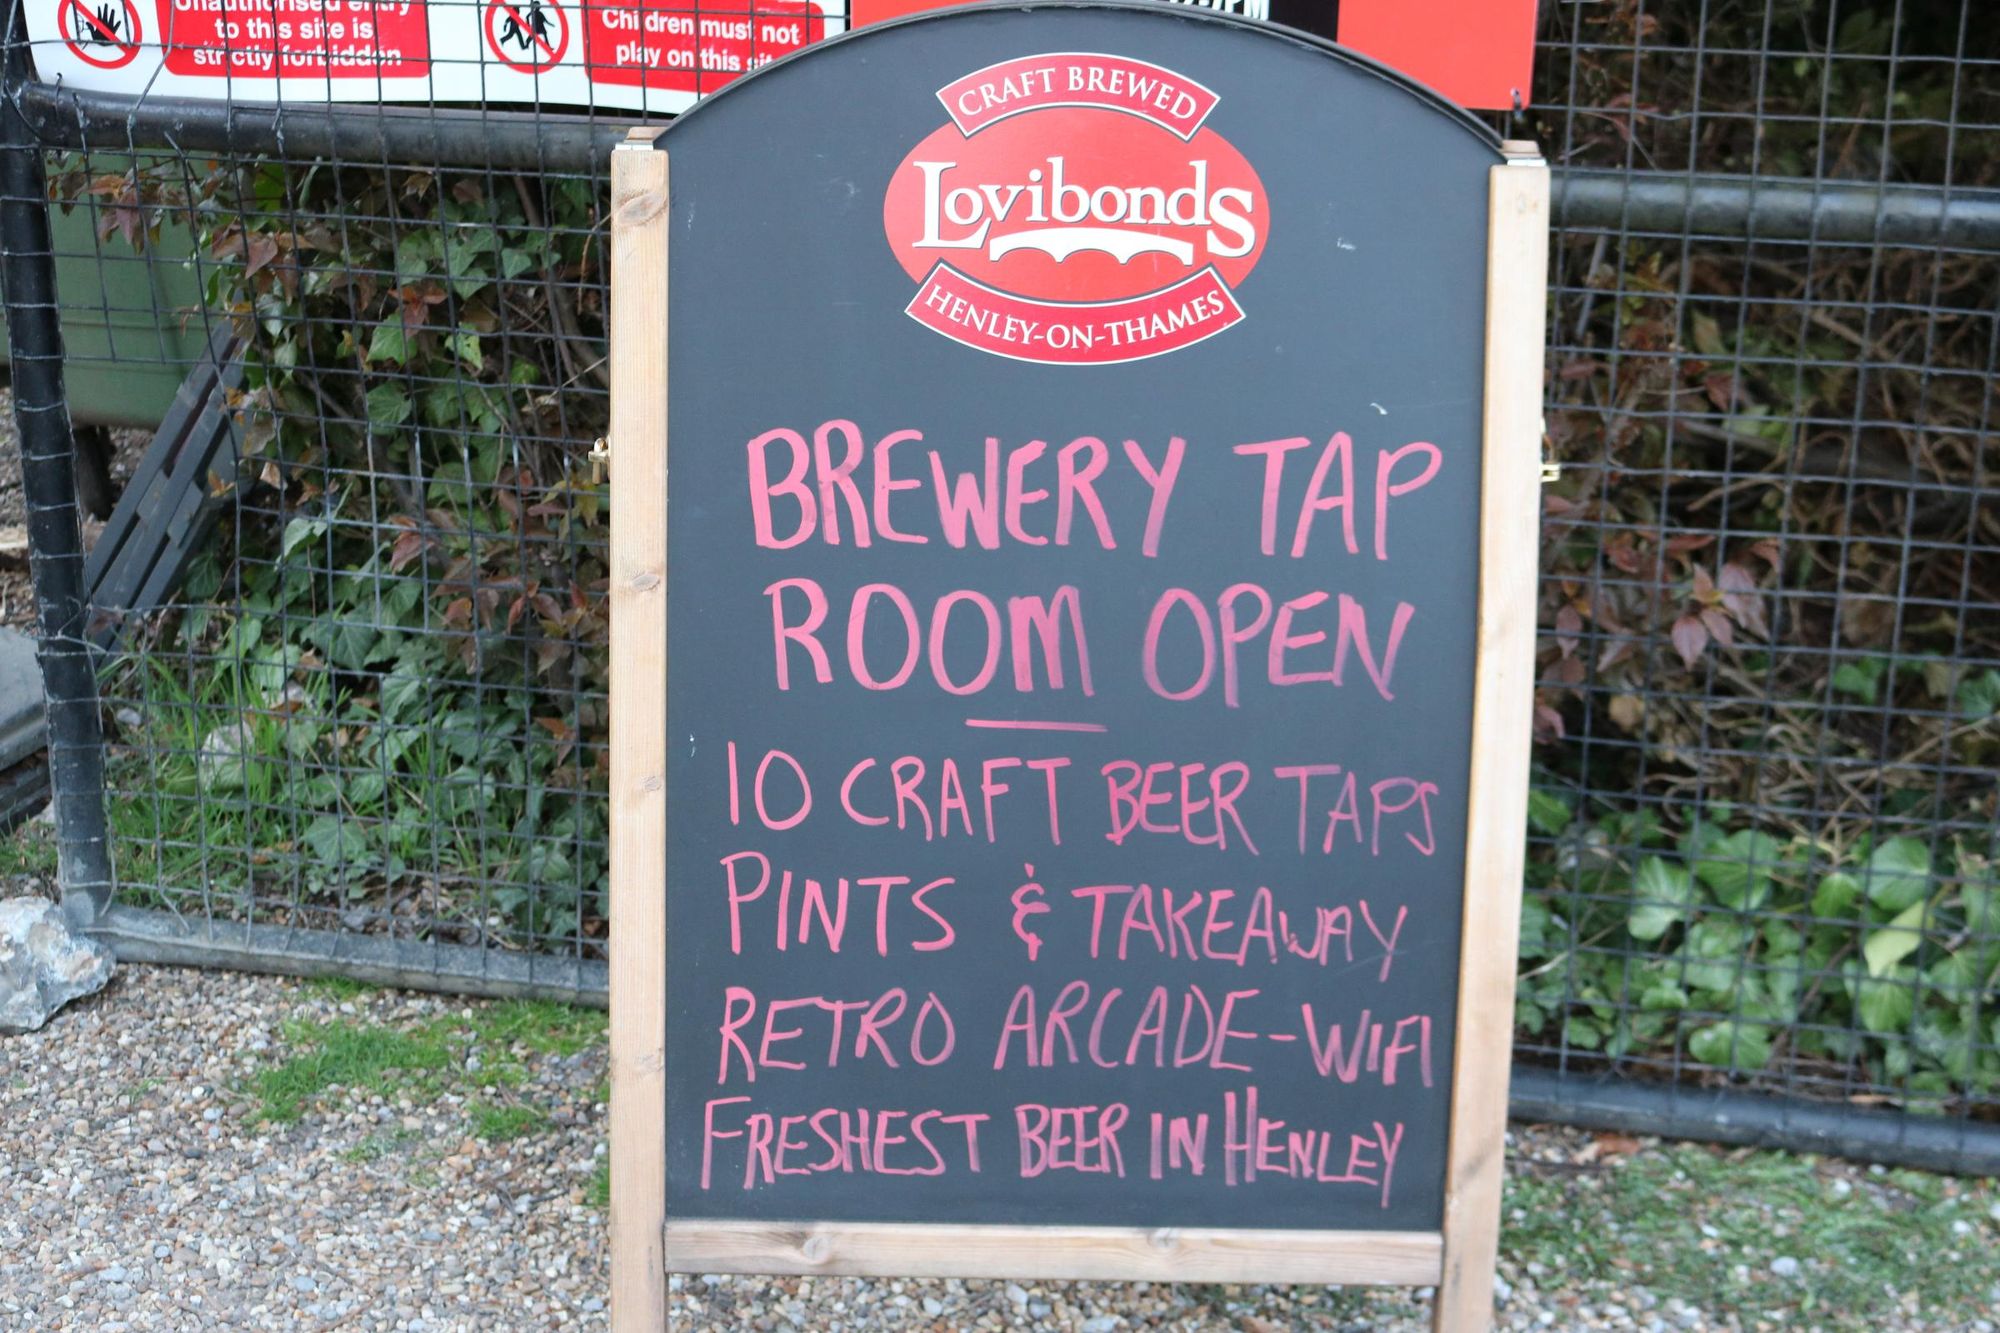 Unauthorised entry
to this site is
strictly forbidden
Children must not
play on this site
CRAFT BREWED
Lovibonds
HENLEY-ON-THAMES
BREWERY TAP
ROOM OPEN
10 CRAFT BEER TAPS
PINTS & TAKEAWAY
RETRO ARCADE-WIFI
FRESHEST BEER IN HENLEY